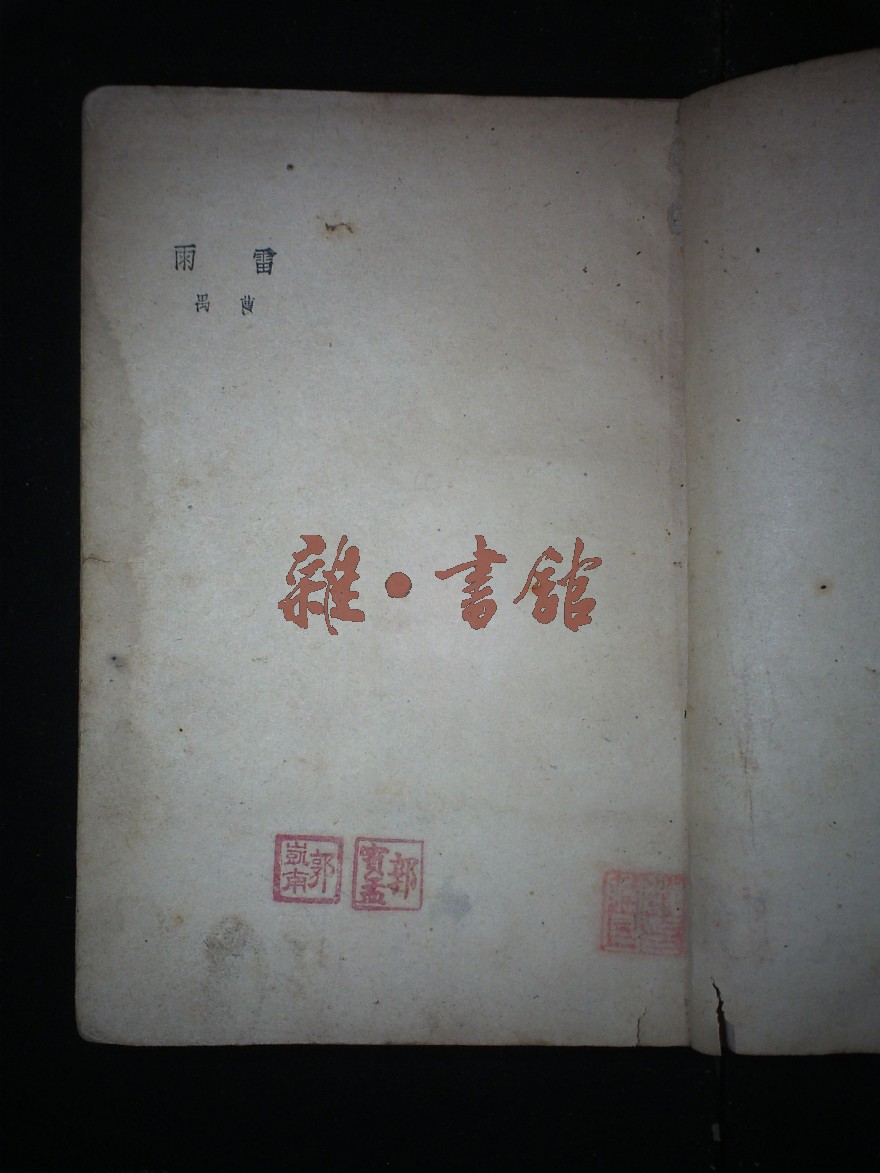 雷雨
曹禺
雜·書館
郭凱南
郭寶孟